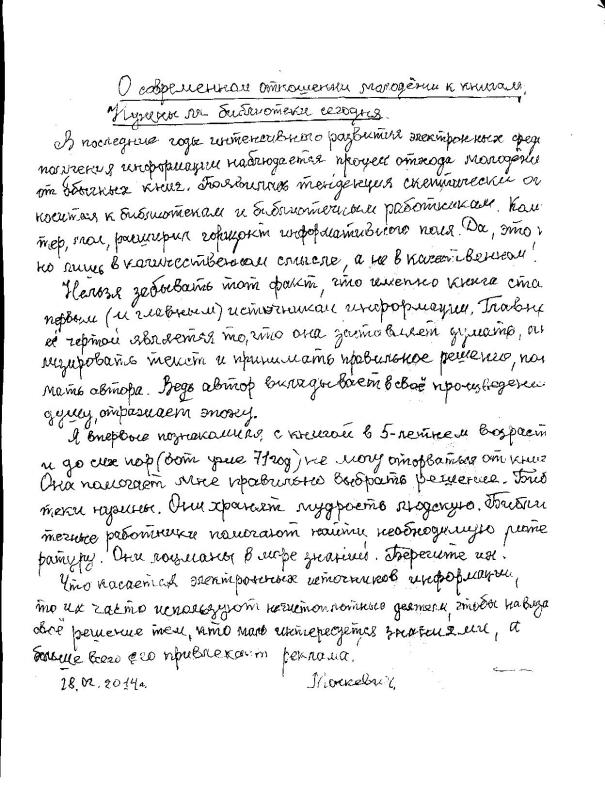 О современном отношении молодёжи к книгам.
Нужны ли библиотеки сегодня.
В последние годы интенсивного развития электронных сред
получения информации наблюдается процесс отхода молодёжи
от обычных книг. Появилась тенденция скептически от
носиться к библиотекам и библиотечным работникам. Ком
тер, мол, расширил горизонт информативного поля. Да, это в
но лишь в количественном смысле, а не в качественном!
Нельзя забывать тот факт, что именно книга ста
первым (и главным) источником информации. Главн
её чертой является то, что она заставляет думать, ан
лизировать текст и принимать правильное решение, пон
мать автора. Ведь автор вкладывает в своё произведени
душу, отражает эпоху.
Я впервые познакомился с книгой в 5-летнем возраст
и до сих пор (вот уже 71 год) не могу оторваться от книг
Она помогает мне правильно выбрать решение. Биб
теки нужны. Они хранят мудрость людскую. Библи
течные работники помогают найти необходимую лите
ратуру. Они лоцманы в море знаний. Берегите их.
Что касается электронных источников информации,
то их часто используют нечистоплотные деятели, чтобы навяза
своё решение тем, кто мало интересуется знаниями, а
больше всего его привлекает реклама.
28.02.2014г.